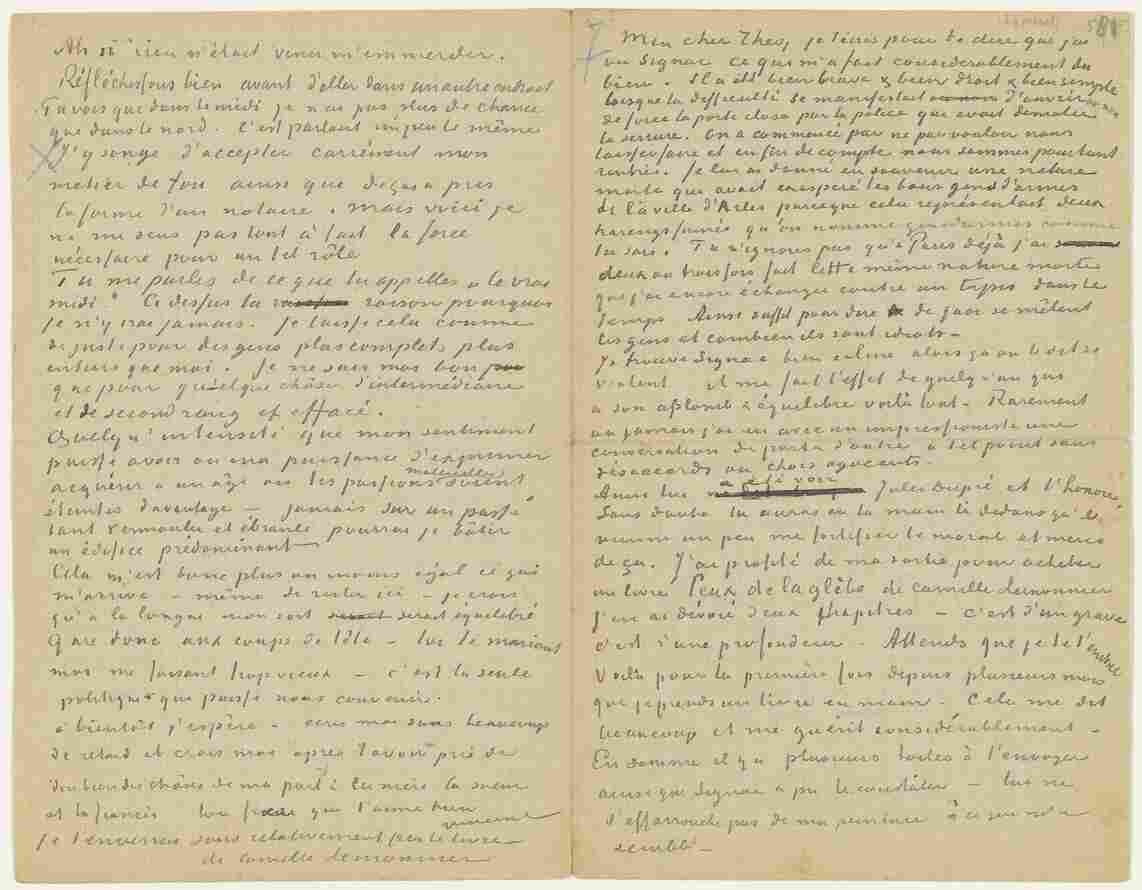 Ah si rien n'était venu m'emmerder.
Réfléchissons bien avant d'aller dans un autre endroit
Tu vois que dans le midi je n'ai pas plus de chance
que dans le nord. C'est partout un peu le même
J'y songe d'accepter carrément mon
metier de fou ainsi que degas a pris
la forme d'un notaire. Mais voici je
ne me sens pas tout à fait la force
nécessaire pour un tel rôle
Tu me parles de ce que tu appelles "le vrai
midi". Ci dessus la raison pourquoi
je n'y irai jamais. Je laisse cela comme
de juste pour des gens plus complets, plus
entiers que moi. Je ne suis moi bon
que pour quelque chose d'intermédiaire
et de second rang et effacé.
Quelqu'intensité que mon sentiment
puisse avoir ou ma puissance d'exprimer
acquérir à un âge où les passions materielles soient
éteintes davantage – jamais sur un passé
tant vermoulu et ébranlé pourrai je bâtir
un édifice prédominant
Cela m'est donc plus ou moins égal ce qui
m'arrive – même de rester ici – je crois
qu'à la longue mon sort serait équilibré
Gare donc aux coups de tête – toi te mariant
moi me faisant trop vieux – c'est la seule
politique que puisse nous convenir.
à bientôt j'espère – ecris moi sans beaucoup
de retard et crois moi après t'avoir prié de
dire bien des choses de ma part à la mère la soeur
et la fiancée ton frère qui t'aime bien
Vincent
Je t'enverrai sous relativement peu le livre
de Camille Lemonnier
Mon cher Theo, je t'écris pour te dire que j'ai
vu Signac ce qui m'a fait considérablement du
bien. Il a été bien brave & bien droit & bien simple
lorsque la difficulté se manifestait d'ouvrir ou non
de force la porte close par la police qui avait démoli
la serrure. On a commencé par ne pas vouloir nous
laisser faire et en fin de compte nous sommes pourtant
rentrés. Je lui ai donné en souvenir une nature
morte qui avait exaspéré les bons gend'armes
de la ville d'Arles parceque cela représentait deux
harengs fumés qu'on nomme gendarmes comme
tu sais. Tu n'ignores pas qu'à Paris déjà j'ai
deux ou trois fois fait cette même nature morte
que j'ai encore échangé contre un tapis dans le
temps Ainsi suffit pour dire de quoi se mêlent
les gens et combien ils sont idiots –
Je trouve Signac bien calme alors qu'on le dit si
violent il me fait l'effet de quelqu'un qui
a son aplomb & équilibre voilà tout. Rarement
ou jamais j'ai eu avec un impressioniste une
conversation de part & d'autre à tel point sans
désaccords ou chocs agacants.
Ainsi lui a été voir Jules Dupré et l'honore
Sans doute tu auras eu la main là dedans qu'il
vienne un peu me fortifier le moral et merci
de ça. J'ai profité de ma sortie pour acheter
un livre Ceux de la glèbe de Camille Lemonnier
J'en ai dévoré deux Chapitres – c'est d'un grave
c'est d'une profondeur – Attends que je te l'envoie
Voilà pour la première fois depuis plusieurs mois
que je prends un livre en main. Cela me dit
beaucoup et me guérit considérablement –
En somme il y a plusieurs toiles à t'envoyer
ainsi que Signac a pu le constater – lui ne
s'effarouche pas de ma peinture à ce qui m'a
semblé –